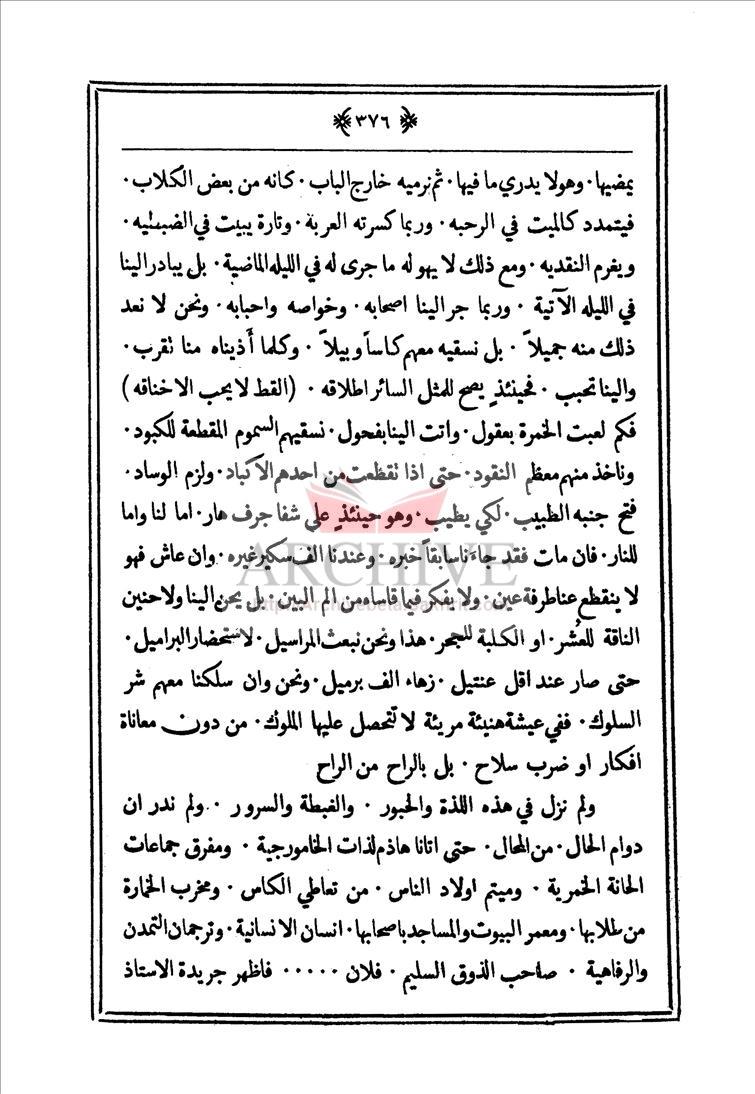 ﴿ ٣٧٦ ﴾
يمضيها ٠ وهولا يدري ما فيها ٠ ثم نرميه خارج الباب ٠ كانه من بعض الكلاب ٠
فيتمدد كالميت في الرحبه ٠ وربما كسرته العربة ٠ وتارة يبيت في الضبطيه ٠
ويغرم النقديه ٠ ومع ذلك لا يهوله ما جرى له في الليله الماضية ٠ بل يبادر الينا
في الليله الآتية ٠ وربما جر الينا اصحابه ٠ وخواصه واحبابه ٠ ونحن لا نعد
ذلك منه جميلاً ٠ بل نسقيه معهم كاساً وبيلاً ٠ وكلما أذيناه منا تقرب ٠
والينا تحبب ٠ فحينئذٍ يصح للمثل السائر اطلاقه ٠ (القط لا يحب الاخناقه)
فكم لعبت الخمرة بعقول ٠ واتت الينا بفحول ٠ نسقيهم السموم المقطعة للكبود ٠
وناخذ منهم معظم النقود ٠ حتى اذا تقطعت من احدهم الاكباد ٠ ولزم الوساد ٠
فتح جنبه الطبيب ٠ لكي يطيب ٠ وهو حينئذٍ على شفا جرف هار ٠ اما لنا واما
للنار ٠ فان مات فقد جاءنا سابقاً خيره ٠ وعندنا الف سكير غيره ٠ وان عاش فهو
لا ينقطع عنا طرفة عين ٠ ولا يفكر فيما قاساه من الم البين ٠ بل يحن الينا ولا حنين
الناقة للعُشر ٠ او الكلبة للجحر ٠ هذا ونحن نبعث المراسيل ٠ لاستحضار البراميل ٠
حتى صار عند اقل عنتيل ٠ زهاء الف برميل ٠ ونحن وان سلكنا معهم شر
السلوك ٠ ففي عيشة هنيئة مريئة لا تتحصل عليها الملوك ٠ من دون معاناة
افكار او ضرب سلاح ٠ بل بالراح من الراح
ولم نزل في هذه اللذة والحبور ٠ والغبطة والسرور ٠ ولم ندر ان
دوام الحال ٠ من المحال ٠ حتى اتانا هاذم لذات الخامورجية ٠ ومفرق جماعات
الحانة الخمرية ٠ وميتم اولاد الناس ٠ من تعاطي الكاس ٠ ومخرب الخمارة
من طلابها ٠ ومعمر البيوت والمساجد باصحابها ٠ انسان الانسانية ٠ وترجمان التمدن
والرفاهية ٠ صاحب الذوق السليم ٠ فلان ٠٠٠٠٠ فاظهر جريدة الاستاذ
ARCHIVE